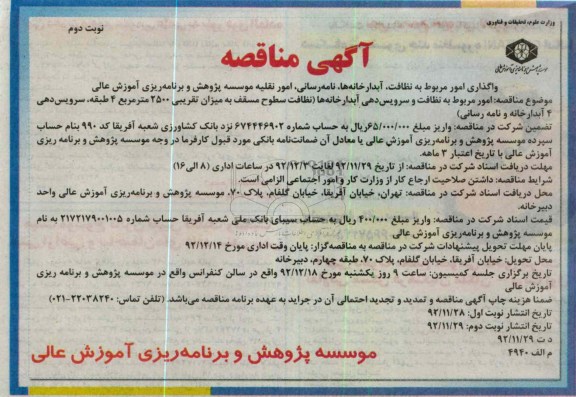 وزارت علوم، تحقیقات و فناوری
نوبت دوم
آگهی مناقصه
واگذاری امور مربوط به نظافت، آبدارخانه‌ها، نامه‌رسانی، امور نقلیه موسسه پژوهش و برنامه‌ریزی آموزش عالی
موضوع مناقصه:امور مربوط به نظافت و سرویس‌دهی آبدارخانه‌ها (نظافت سطوح مسقف به میزان تقریبی ۲۵۰۰ مترمربع ۴ طبقه، سرویس‌دهی
۴ آبدارخانه و نامه رسانی)
تضمین شرکت در مناقصه: واریز مبلغ ۶۵/۰۰۰/۰۰۰ریال به حساب شماره ۶۷۴۴۴۶۹۰۲ نزد بانک کشاورزی شعبه آفریقا کد ۹۹۰ بنام حساب
سپرده موسسه پژوهش و برنامه‌ریزی آموزش عالی یا معادل آن ضمانت‌نامه بانکی مورد قبول کارفرما در وجه موسسه پژوهش و برنامه ریزی
آموزش عالی با تاریخ اعتبار ۳ ماهه.
مهلت دریافت اسناد شرکت در مناقصه: از تاریخ ۹۲/۱۱/۲۹ لغایت ۹۲/۱۲/۳ در ساعات اداری (۸ الی۱۶)
شرایط مناقصه: داشتن صلاحیت ارجاع کار از وزارت کار و امور اجتماعی الزامی است.
محل دریافت اسناد شرکت در مناقصه: تهران، خیابان آفریقا، خیابان گلفام، پلاک ۷۰، موسسه پژوهش و برنامه‌ریزی آموزش عالی واحد
دبیرخانه.
قیمت اسناد شرکت در مناقصه: واریز مبلغ ۴۰۰/۰۰۰ ریال به حساب سیبای بانک ملی شعبه آفریقا حساب شماره ۲۱۷۲۱۷۹۰۰۱۰۰۵ به نام
موسسه پژوهش و برنامه‌ریزی آموزش عالی
پایان مهلت تحویل پیشنهادات شرکت در مناقصه به مناقصه‌گزار: پایان وقت اداری مورخ ۹۲/۱۲/۱۴
محل تحویل: خیابان آفریقا، خیابان گلفام، پلاک ۷۰، طبقه چهارم، دبیرخانه
تاریخ برگزاری جلسه کمیسیون: ساعت ۹ روز یکشنبه مورخ ۹۲/۱۲/۱۸ واقع در سالن کنفرانس واقع در موسسه پژوهش و برنامه ریزی
آموزش عالی
ضمنا هزینه چاپ آگهی مناقصه و تمدید و تجدید احتمالی آن در جراید به عهده برنامه مناقصه می‌باشد. (تلفن تماس: ۲۲۰۳۸۲۴۰-۰۲۱)
تاریخ انتشار نوبت اول: ۹۲/۱۱/۲۸
تاریخ انتشار نوبت دوم: ۹۲/۱۱/۲۹
د ت ۹۲/۱۱/۲۹
م الف ۴۹۴۰
موسسه پژوهش و برنامه‌ریزی آموزش عالی